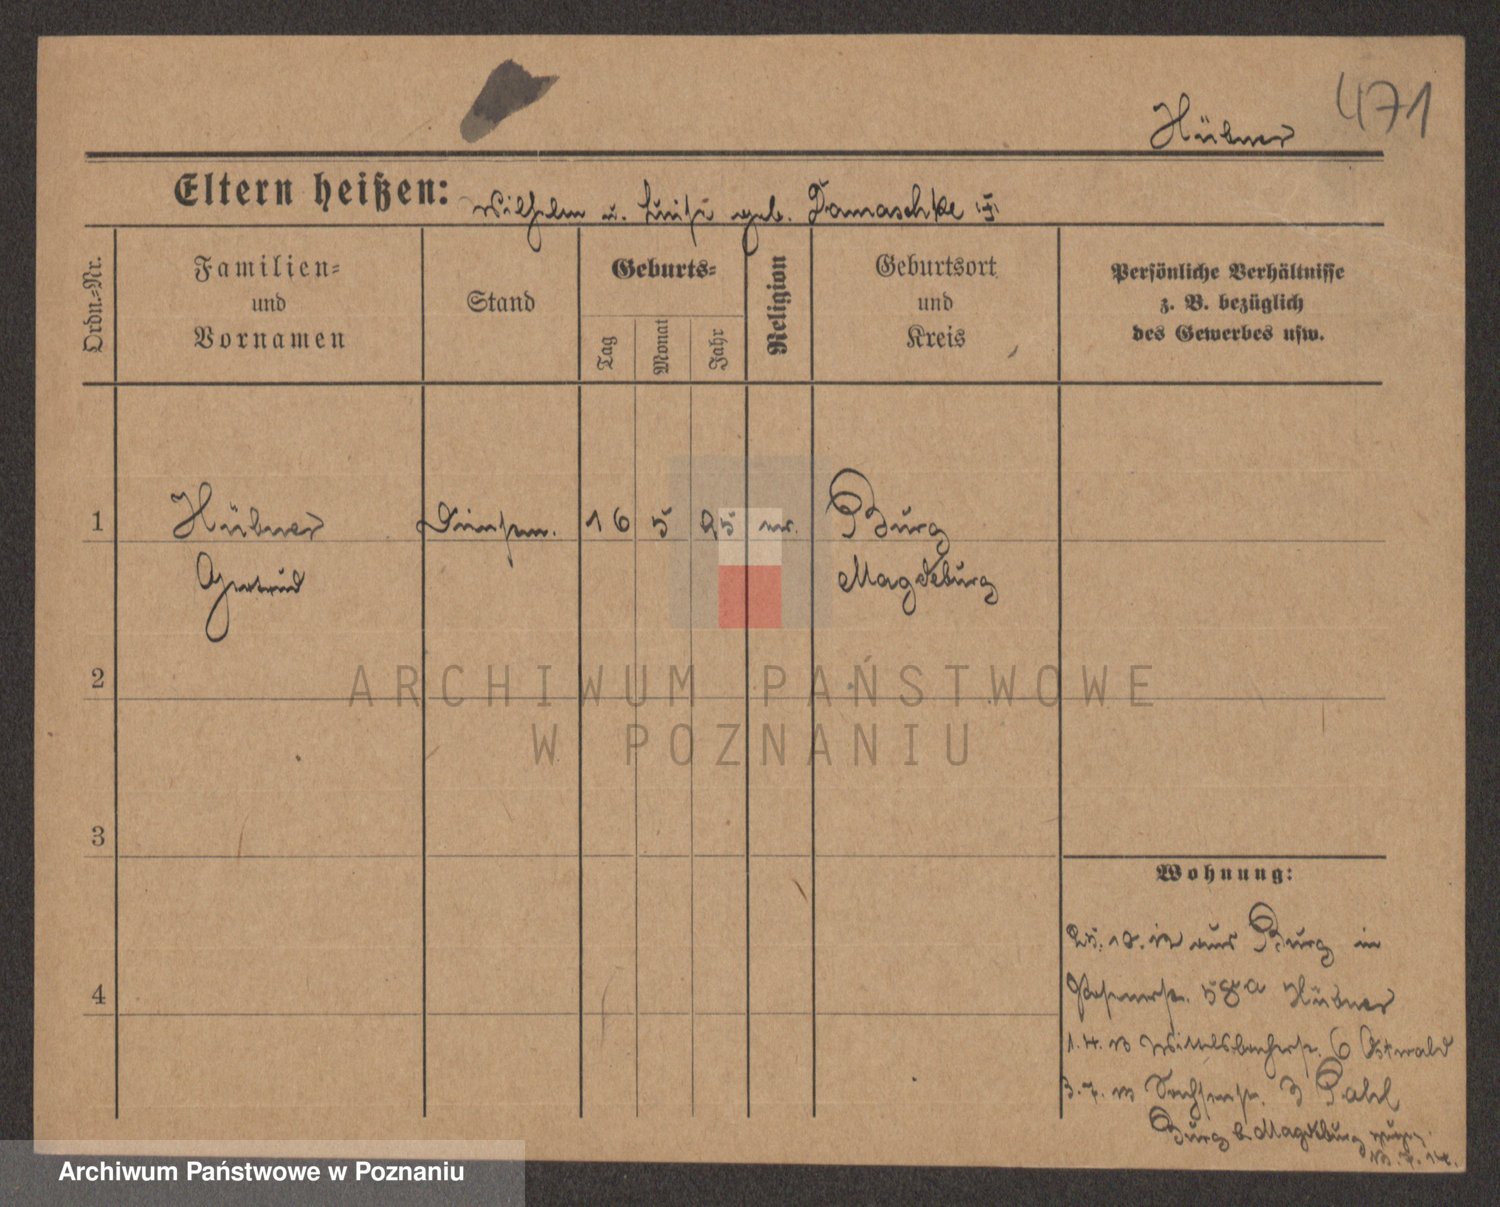 471
Hübner
Eltern heißen: Wilhelm u. Luise geb. Damaschke
Ordn.-Nr.
Familien- und Vornamen
Stand
Geburts-
Tag
Monat
Jahr
Religion
Geburtsort und Kreis
Persönliche Verhältnisse
z. B. bezüglich
des Gewerbes usw.
1 Hübner 16 5 95 Burg
Gertrud Magdeburg
2
3
4
ARCHIWUM PAŃSTWOWE
W POZNANIU
Wohnung:
aus Burg in
58a Hübner
1.4. Wittelsbacherstr. 6 Ostwald
3.7. Sachsenstr. 3 Pahl
Burg b Magdeburg
Archiwum Państwowe w Poznaniu